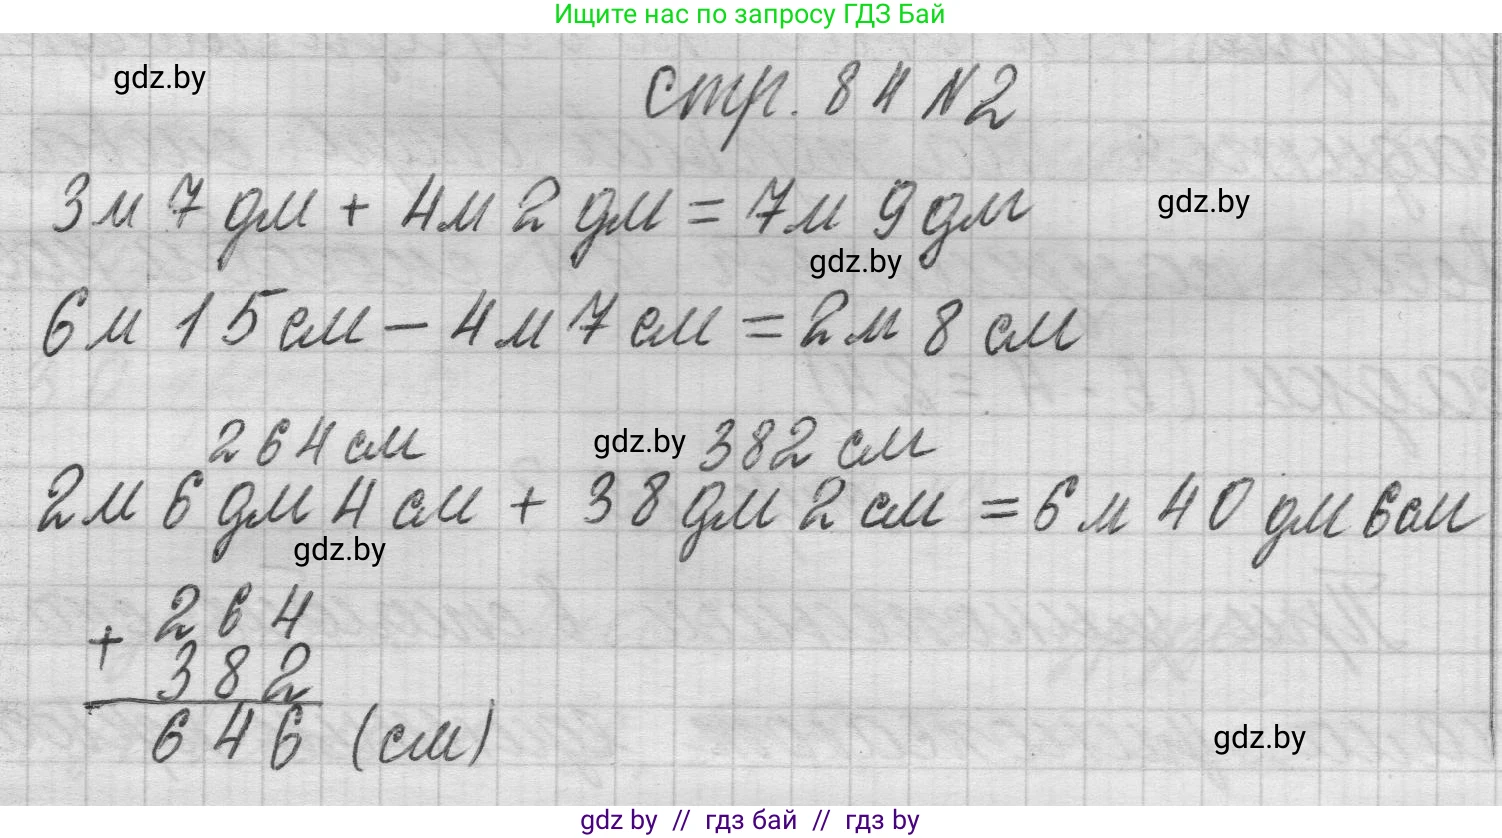 Ищите нас по запросу ГДЗ Бай
gdz.by
стр. 84 №2
3м 7 дм + 4м 2 дм = 7м 9 дм
gdz.by
gdz.by
6м 15 см – 4м 7 см = 2м 8 см
264 см
gdz.by
382 см
2м 6 дм 4 см + 38 дм 2 см = 6 м 40 дм 6 см
gdz.by
+ 264
382
646 (см)
gdz.by
gdz.by // гдз бай // гдз by